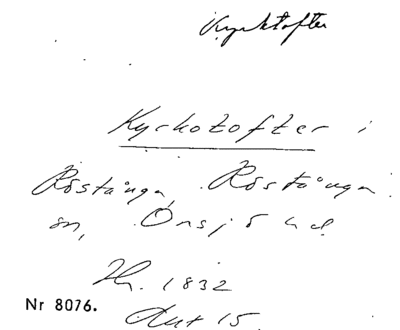 Kyrktofter
Kyrkotofter i
Röstånga, Röstånga
sn, Onsjö hd.
Nr 8076.
Akt 15.